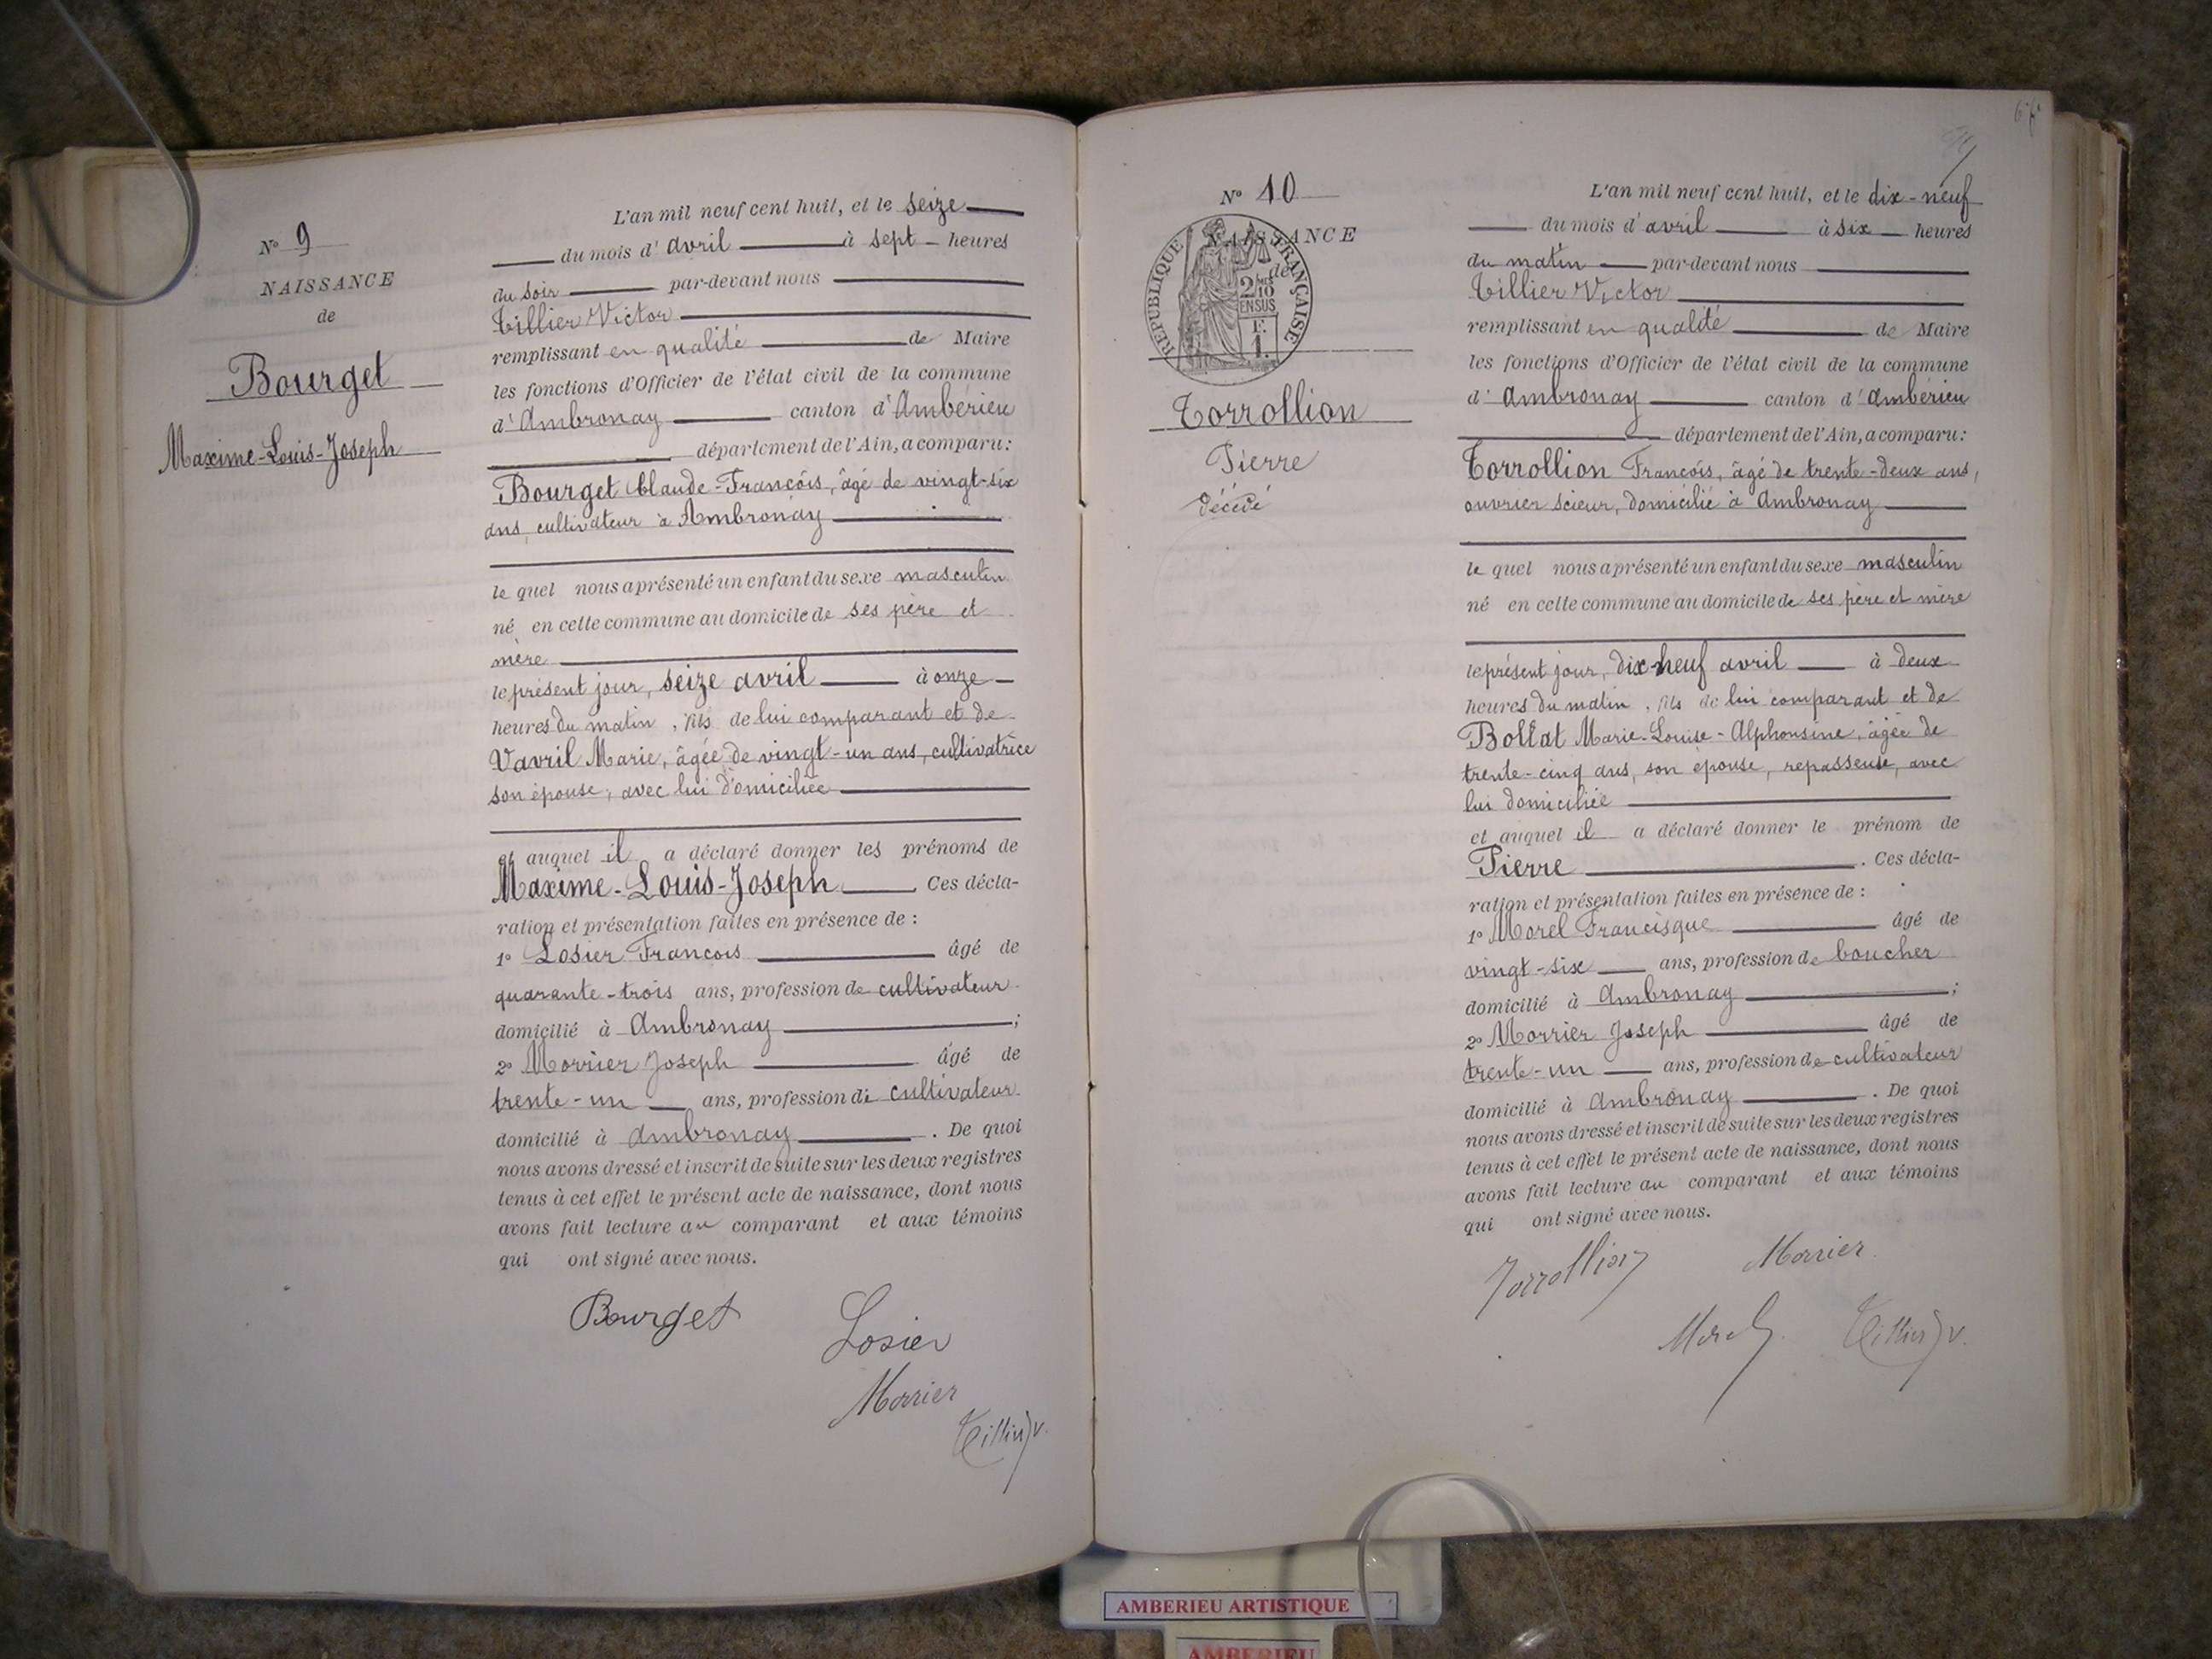 N° 9
NAISSANCE
de
Bourget
Maxime-Louis-Joseph
L'an mil neuf cent huit, et le seize
du mois d'avril à sept heures
du soir par-devant nous
Tillier Victor
remplissant en qualité de Maire
les fonctions d'Officier de l'état civil de la commune
d'Ambronay canton d'Ambérieu
département de l'Ain, a comparu:
Bourget Claude-François, âgé de vingt-six
ans, cultivateur à Ambronay
le quel nous a présenté un enfant du sexe masculin
né en cette commune au domicile de ses père et
mère
le présent jour, seize avril à onze
heures du matin, fils de lui comparant et de
Vavril Marie, âgée de vingt-un ans, cultivatrice
son épouse, avec lui domiciliée
et auquel il a déclaré donner les prénoms de
Maxime-Louis-Joseph. Ces décla-
ration et présentation faites en présence de :
1° Losier François âgé de
quarante-trois ans, profession de cultivateur
domicilié à Ambronay ;
2° Morrier Joseph âgé de
trente-un ans, profession de cultivateur
domicilié à Ambronay . De quoi
nous avons dressé et inscrit de suite sur les deux registres
tenus à cet effet le présent acte de naissance, dont nous
avons fait lecture au comparant et aux témoins
qui ont signé avec nous.
Bourget
Losier
Morrier
Tillier V.
N° 10
NAISSANCE
de
RÉPUBLIQUE FRANÇAISE
2/10 EN SUS
F.
1.
Torrollion
Pierre
décédé
L'an mil neuf cent huit, et le dix-neuf
du mois d'avril à six heures
du matin par-devant nous
Tillier Victor
remplissant en qualité de Maire
les fonctions d'Officier de l'état civil de la commune
d'Ambronay canton d'Ambérieu
département de l'Ain, a comparu:
Torrollion François, âgé de trente-deux ans,
ouvrier scieur, domicilié à Ambronay
le quel nous a présenté un enfant du sexe masculin
né en cette commune au domicile de ses père et mère
le présent jour, dix-neuf avril à deux
heures du matin, fils de lui comparant et de
Bollat Marie-Louise-Alphonsine, âgée de
trente-cinq ans, son épouse, repasseuse, avec
lui domiciliée
et auquel il a déclaré donner le prénom de
Pierre . Ces décla-
ration et présentation faites en présence de :
1° Morel Francisque âgé de
vingt-six ans, profession de boucher
domicilié à Ambronay ;
2° Morrier Joseph âgé de
trente-un ans, profession de cultivateur
domicilié à Ambronay . De quoi
nous avons dressé et inscrit de suite sur les deux registres
tenus à cet effet le présent acte de naissance, dont nous
avons fait lecture au comparant et aux témoins
qui ont signé avec nous.
Torrollion
Morrier
Morel
Tillier V.
AMBERIEU ARTISTIQUE
AMBERIEU